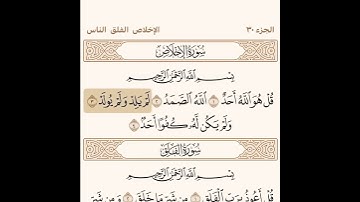 الجزء ٣٠ الإخلاص الفلق الناس
سُورَةُ الإِخْلَاصِ
بِسْمِ اللَّهِ الرَّحْمَٰنِ الرَّحِيمِ
قُلْ هُوَ اللَّهُ أَحَدٌ ١ اللَّهُ الصَّمَدُ ٢ لَمْ يَلِدْ وَلَمْ يُولَدْ ٣
وَلَمْ يَكُن لَّهُ كُفُوًا أَحَدٌ ٤
سُورَةُ الفَلَقِ
بِسْمِ اللَّهِ الرَّحْمَٰنِ الرَّحِيمِ
قُلْ أَعُوذُ بِرَبِّ الْفَلَقِ ١ مِن شَرِّ مَا خَلَقَ ٢ وَمِن شَرِّ